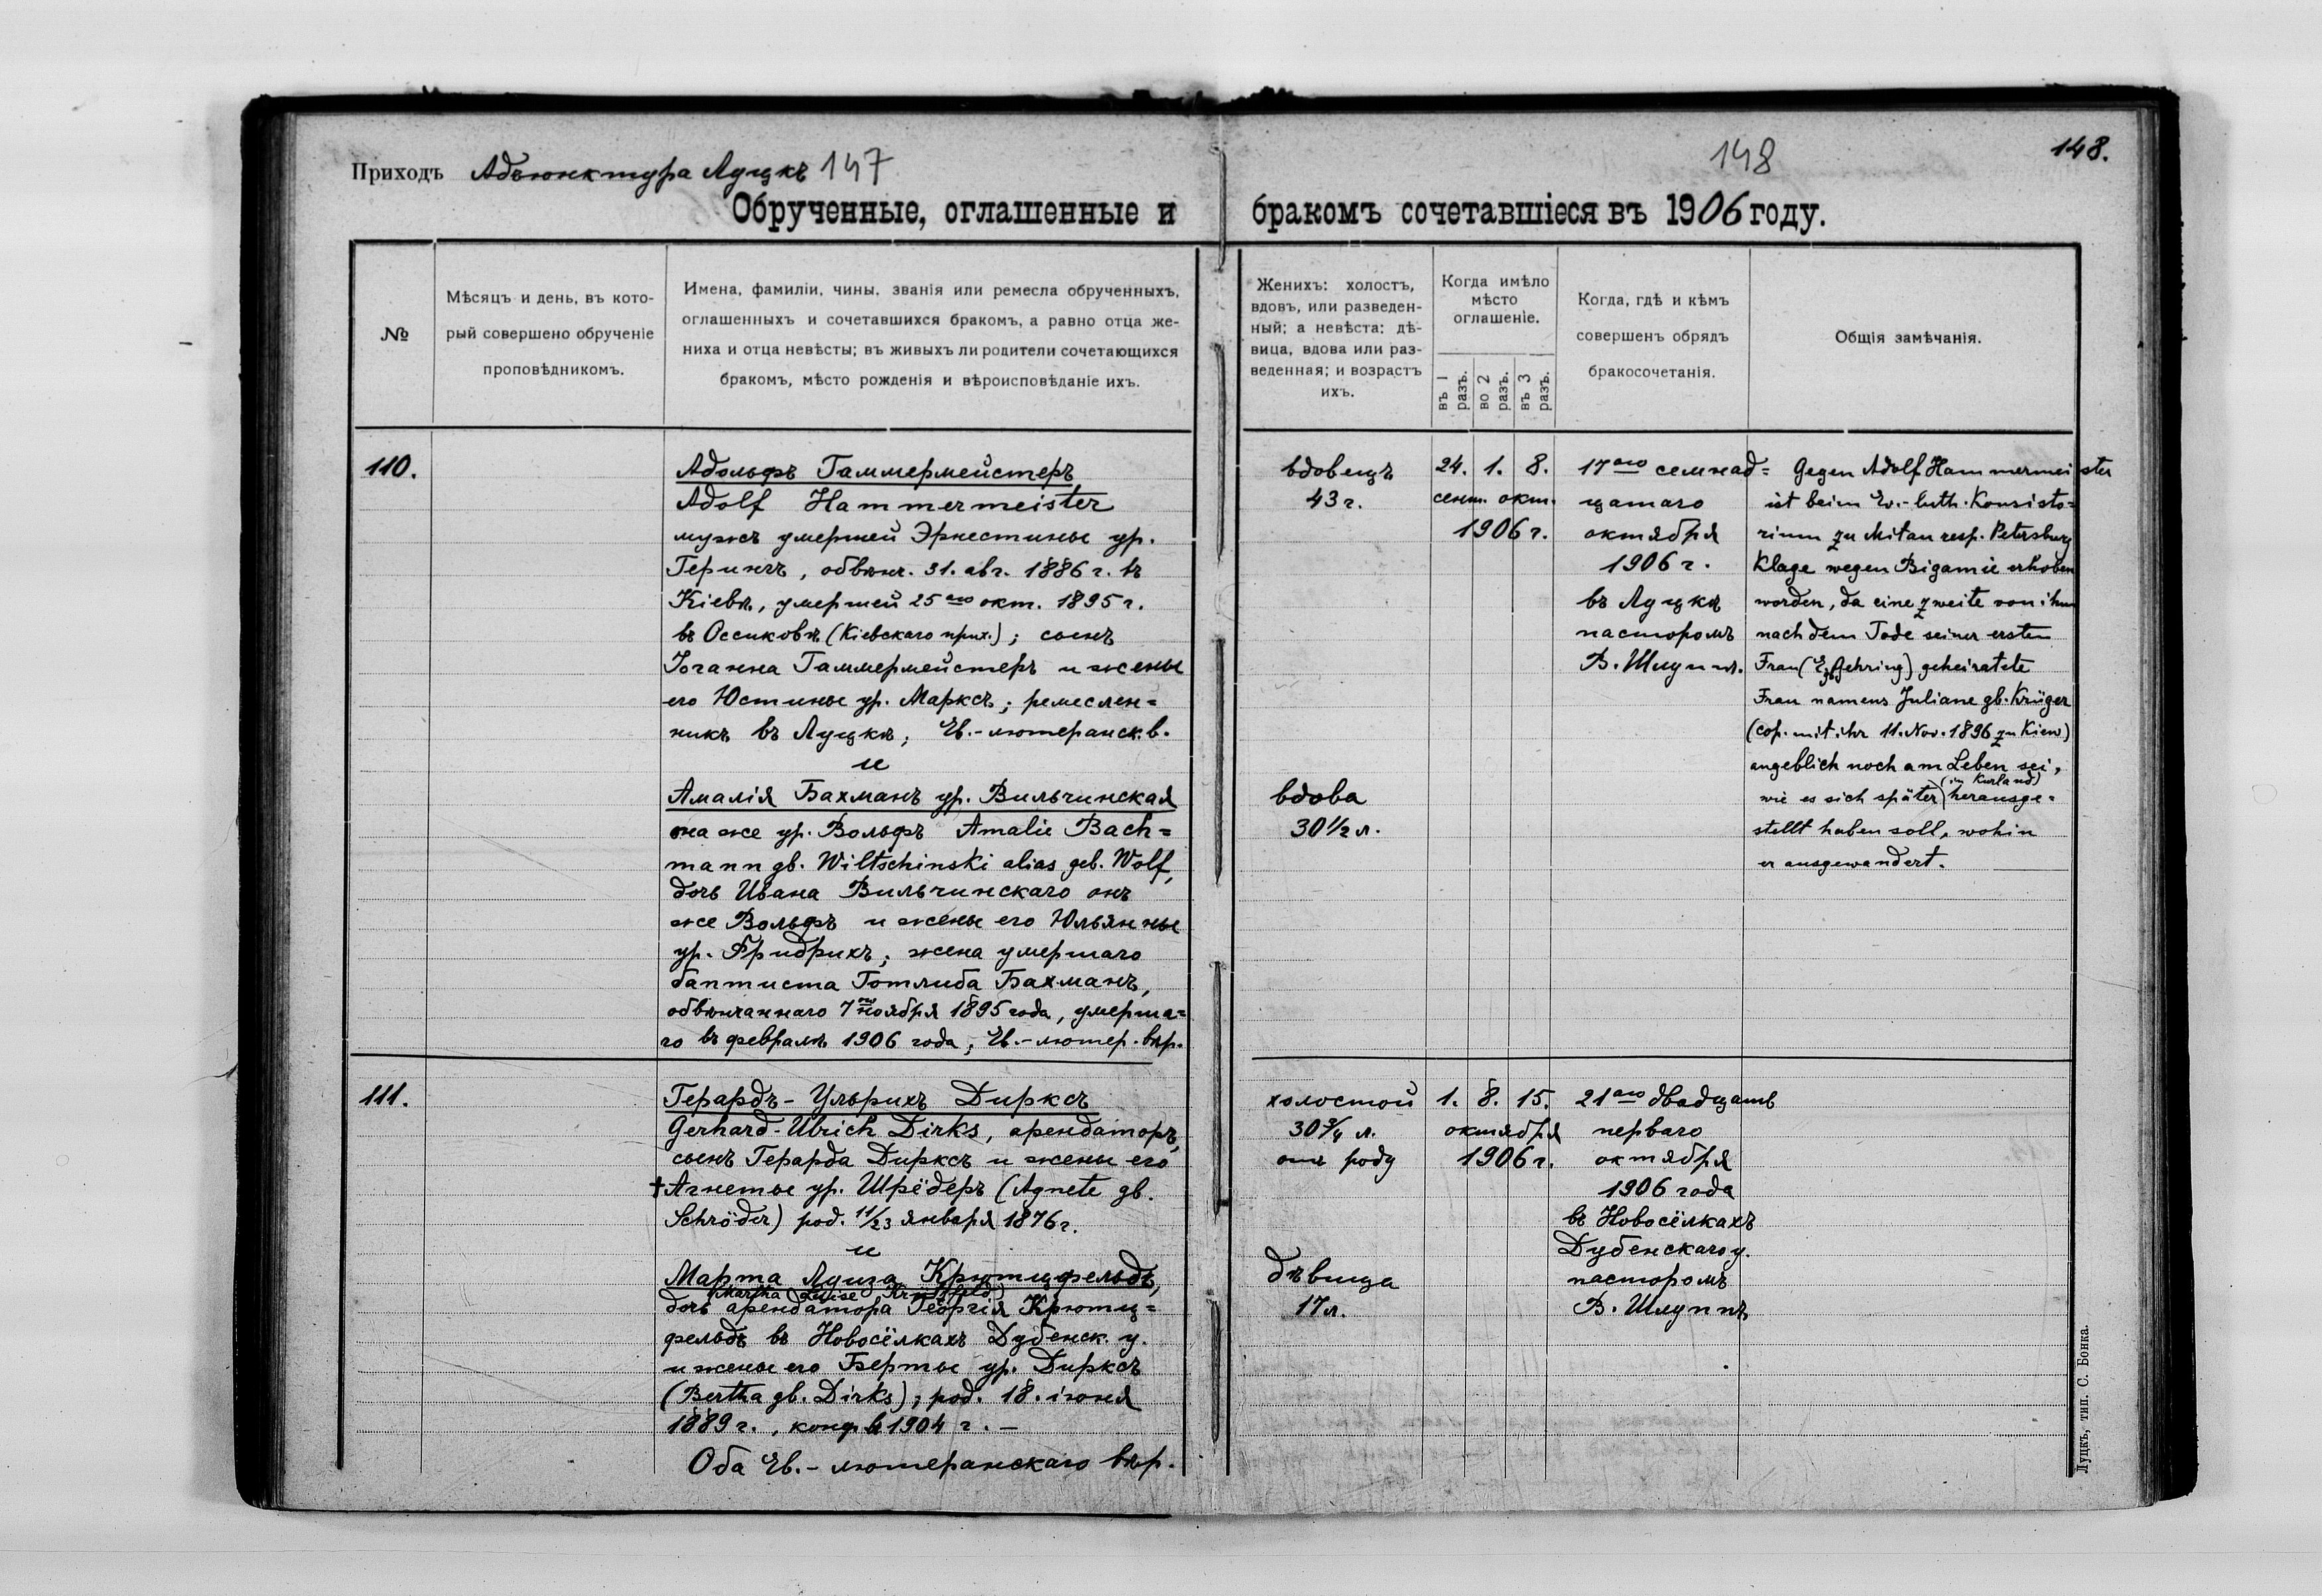 Приходъ Адъюнктура Луцкъ 147
148
148.
Обрученные, оглашенные и бракомъ сочетавшіеся въ 1906 году.
№
Мѣсяцъ и день, въ кото-
рый совершено обрученіе
проповѣдникомъ.
Имена, фамиліи, чины, званія или ремесла обрученныхъ,
оглашенныхъ и сочетавшихся бракомъ, а равно отца же-
ниха и отца невѣсты; въ живыхъ ли родители сочетающихся
бракомъ, мѣсто рожденія и вѣроисповѣданіе ихъ.
Женихъ: холостъ,
вдовъ, или разведен-
ный; а невѣста: дѣ-
вица, вдова или раз-
веденная; и возрастъ
ихъ.
Когда имѣло
мѣсто
оглашеніе.
въ 1 разъ.
во 2 разъ.
въ 3 разъ.
Когда, гдѣ и кѣмъ
совершенъ обрядъ
бракосочетанія.
Общія замѣчанія.
110.
Адольфъ Гаммермейстеръ
Adolf Hammermeister
мужъ умершей Эрнестины ур.
Герингъ, обвѣнч. 31. авг. 1886 г. въ
Кіевѣ, умершей 25 аго окт. 1895 г.
въ Оссиковѣ (Кіевскаго прих.); сынъ
Іоганна Гаммермейстеръ и жены
его Юстины ур. Марксъ; ремеслен=
никъ въ Луцкѣ; Ев.-лютеранск. в.
и
Амалія Бахманъ ур. Вильчинская
она же ур. Вольфъ Amalie Bach=
mann gb. Wiltschinski alias geb. Wolf,
дочь Ивана Вильчинскаго онъ
же Вольфъ и жены его Юльянны
ур. Фридрихъ; жена умершаго
баптиста Готлиба Бахманъ,
обвѣнчаннаго 7го ноября 1895 года, умерша=
го въ февралѣ 1906 года; Ев.-лютер. вѣр.
вдовецъ
43 г.
вдова
30 1/2 л.
24. 1. 8.
сент. окт.
1906 г.
17 аго семнад=
цатаго
октября
1906 г.
въ Луцкѣ
пасторомъ
В. Шлуппъ.
Gegen Adolf Hammermeister
ist beim Ev.-luth. Konsisto=
rium zu Mitau resp. Petersburg
Klage wegen Bigamie erhoben
worden, da eine zweite von ihm
nach dem Tode seiner ersten
Frau (E. gb. Gehring) geheiratete
Frau namens Juliane gb. Krüger
(cop. mit ihr 11. Nov. 1896 zu Kiew)
angeblich noch am Leben sei,
(in Kurland)
wie es sich später herausge=
stellt haben soll, wohin
er ausgewandert.
111.
Герардъ-Ульрихъ Дирксъ
Gerhard-Ulrich Dirks, арендаторъ,
сынъ Герарда Дирксъ и жены его
†Агнеты ур. Шрёдеръ (Agnete gb.
Schröder) род. 11/23 января 1876 г.
и
Марта Луиза Крютцфельдъ,
(Martha Luise Krützfeld)
дочь арендатора Георгія Крютц=
фельдъ въ Новосёлкахъ Дубенск. у.
и жены его Берты ур. Дирксъ
(Bertha gb. Dirks); род. 18. іюня
1889 г., конф. въ 1904 г. —
Оба Ев.-лютеранскаго вѣр.
холостой
30 3/4 л.
отъ роду
дѣвица
17 л.
1. 8. 15.
октября
1906 г.
21 аго двадцать
перваго
октября
1906 года
въ Новосёлкахъ
Дубенскаго у.
пасторомъ
В. Шлуппъ
Луцкъ, тип. С. Бонка.